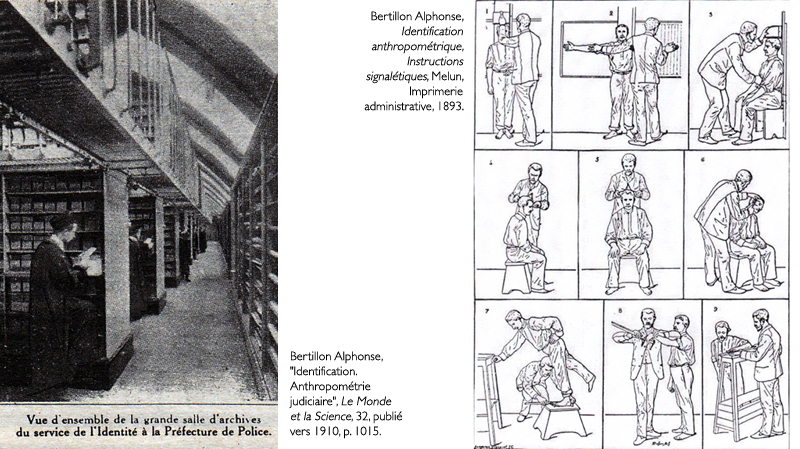 Bertillon Alphonse,
Identification
anthropométrique,
Instructions
signalétiques, Melun,
Imprimerie
administrative, 1893.
Bertillon Alphonse,
"Identification.
Anthropométrie
judiciaire", Le Monde
et la Science, 32, publié
vers 1910, p. 1015.
Vue d'ensemble de la grande salle d'archives
du service de l'Identité à la Préfecture de Police.
1
2
3
4
5
6
7
8
9